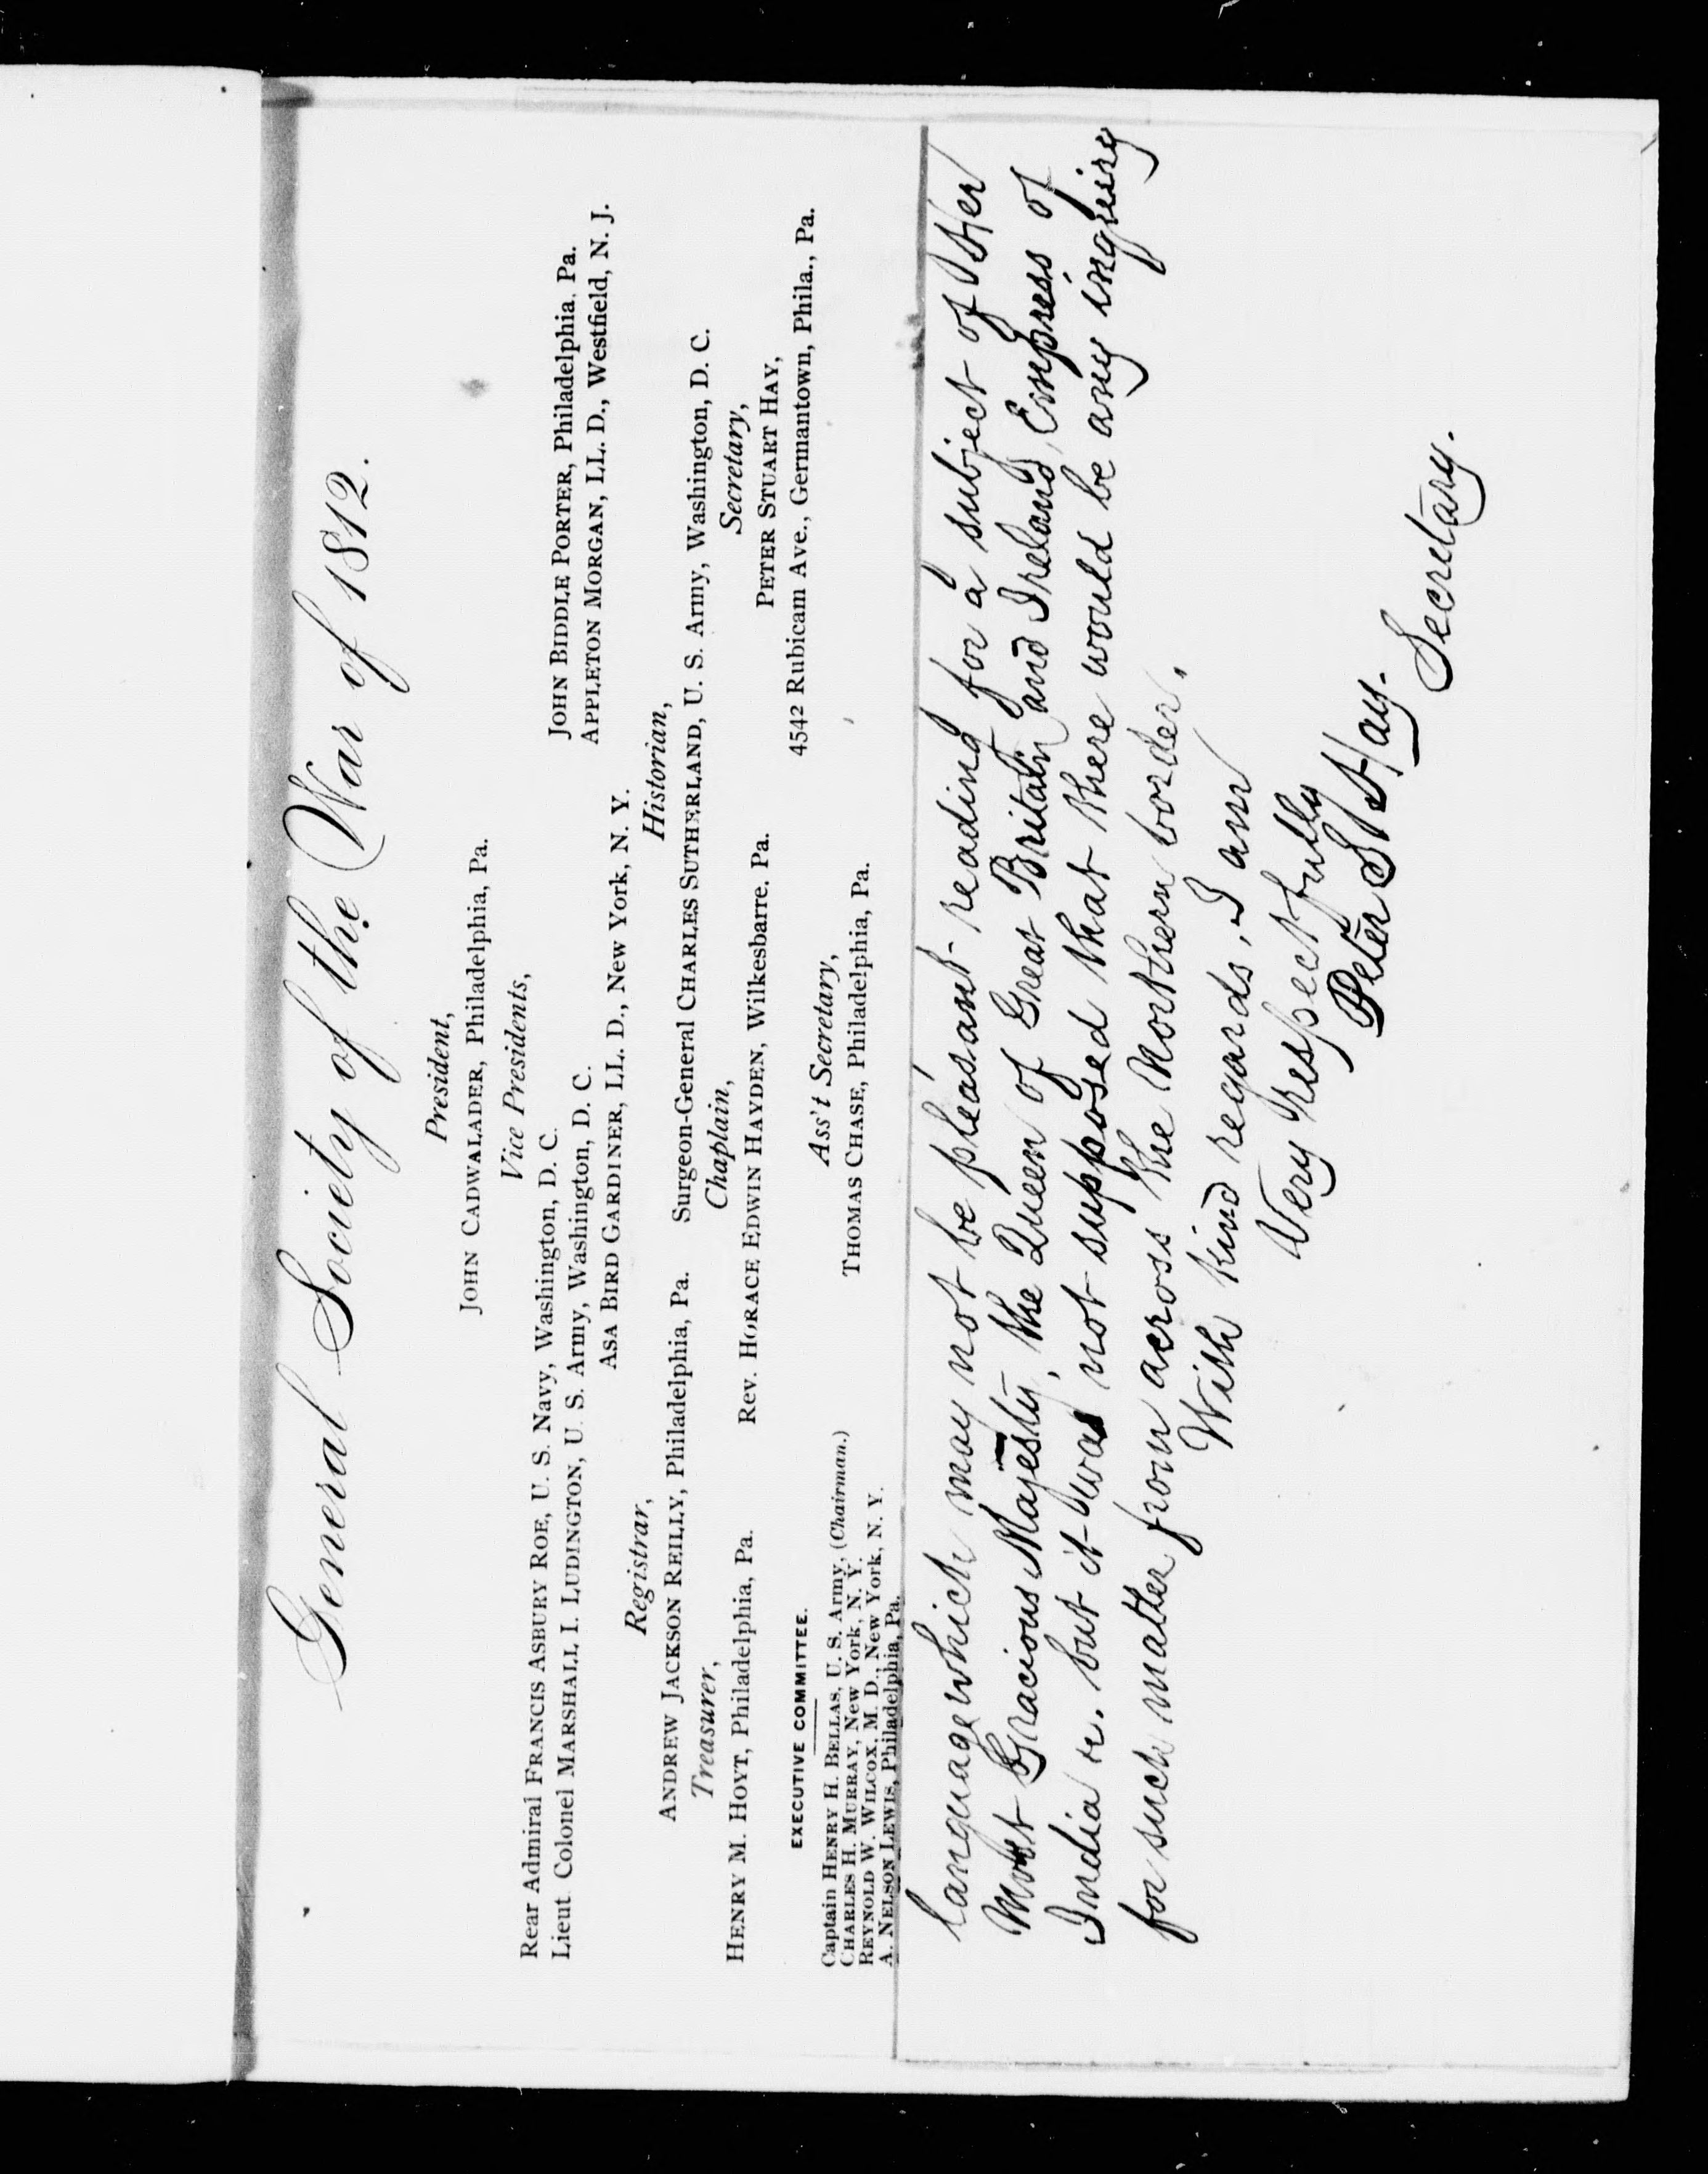 General Society of the War of 1812.
President,
JOHN CADWALADER, Philadelphia, Pa.
Vice Presidents,
Rear Admiral FRANCIS ASBURY ROE, U. S. Navy, Washington, D. C.
JOHN BIDDLE PORTER, Philadelphia, Pa.
Lieut. Colonel MARSHALL I. LUDINGTON, U. S. Army, Washington, D. C.
APPLETON MORGAN, LL. D., Westfield, N. J.
ASA BIRD GARDINER, LL. D., New York, N. Y.
Registrar,
Historian,
ANDREW JACKSON REILLY, Philadelphia, Pa.
Surgeon-General CHARLES SUTHERLAND, U. S. Army, Washington, D. C.
Treasurer,
Chaplain,
Secretary,
HENRY M. HOYT, Philadelphia, Pa.
Rev. HORACE EDWIN HAYDEN, Wilkesbarre, Pa.
PETER STUART HAY,
4542 Rubicam Ave., Germantown, Phila., Pa.
EXECUTIVE COMMITTEE.
Ass't Secretary,
Captain HENRY H. BELLAS, U. S. Army, (Chairman.)
THOMAS CHASE, Philadelphia, Pa.
CHARLES H. MURRAY, New York, N. Y.
REYNOLD W. WILCOX, M. D., New York, N. Y.
A. NELSON LEWIS, Philadelphia, Pa.
language which may not be pleasant reading for a subject of Her
Most Gracious Majesty, the Queen of Great Britain and Ireland, Empress of
India &. but it was not supposed that there would be any inquiry
for such matter from across the Northern border.
With kind regards, I am
Very respectfully
Peter S. Hay.
Secretary.